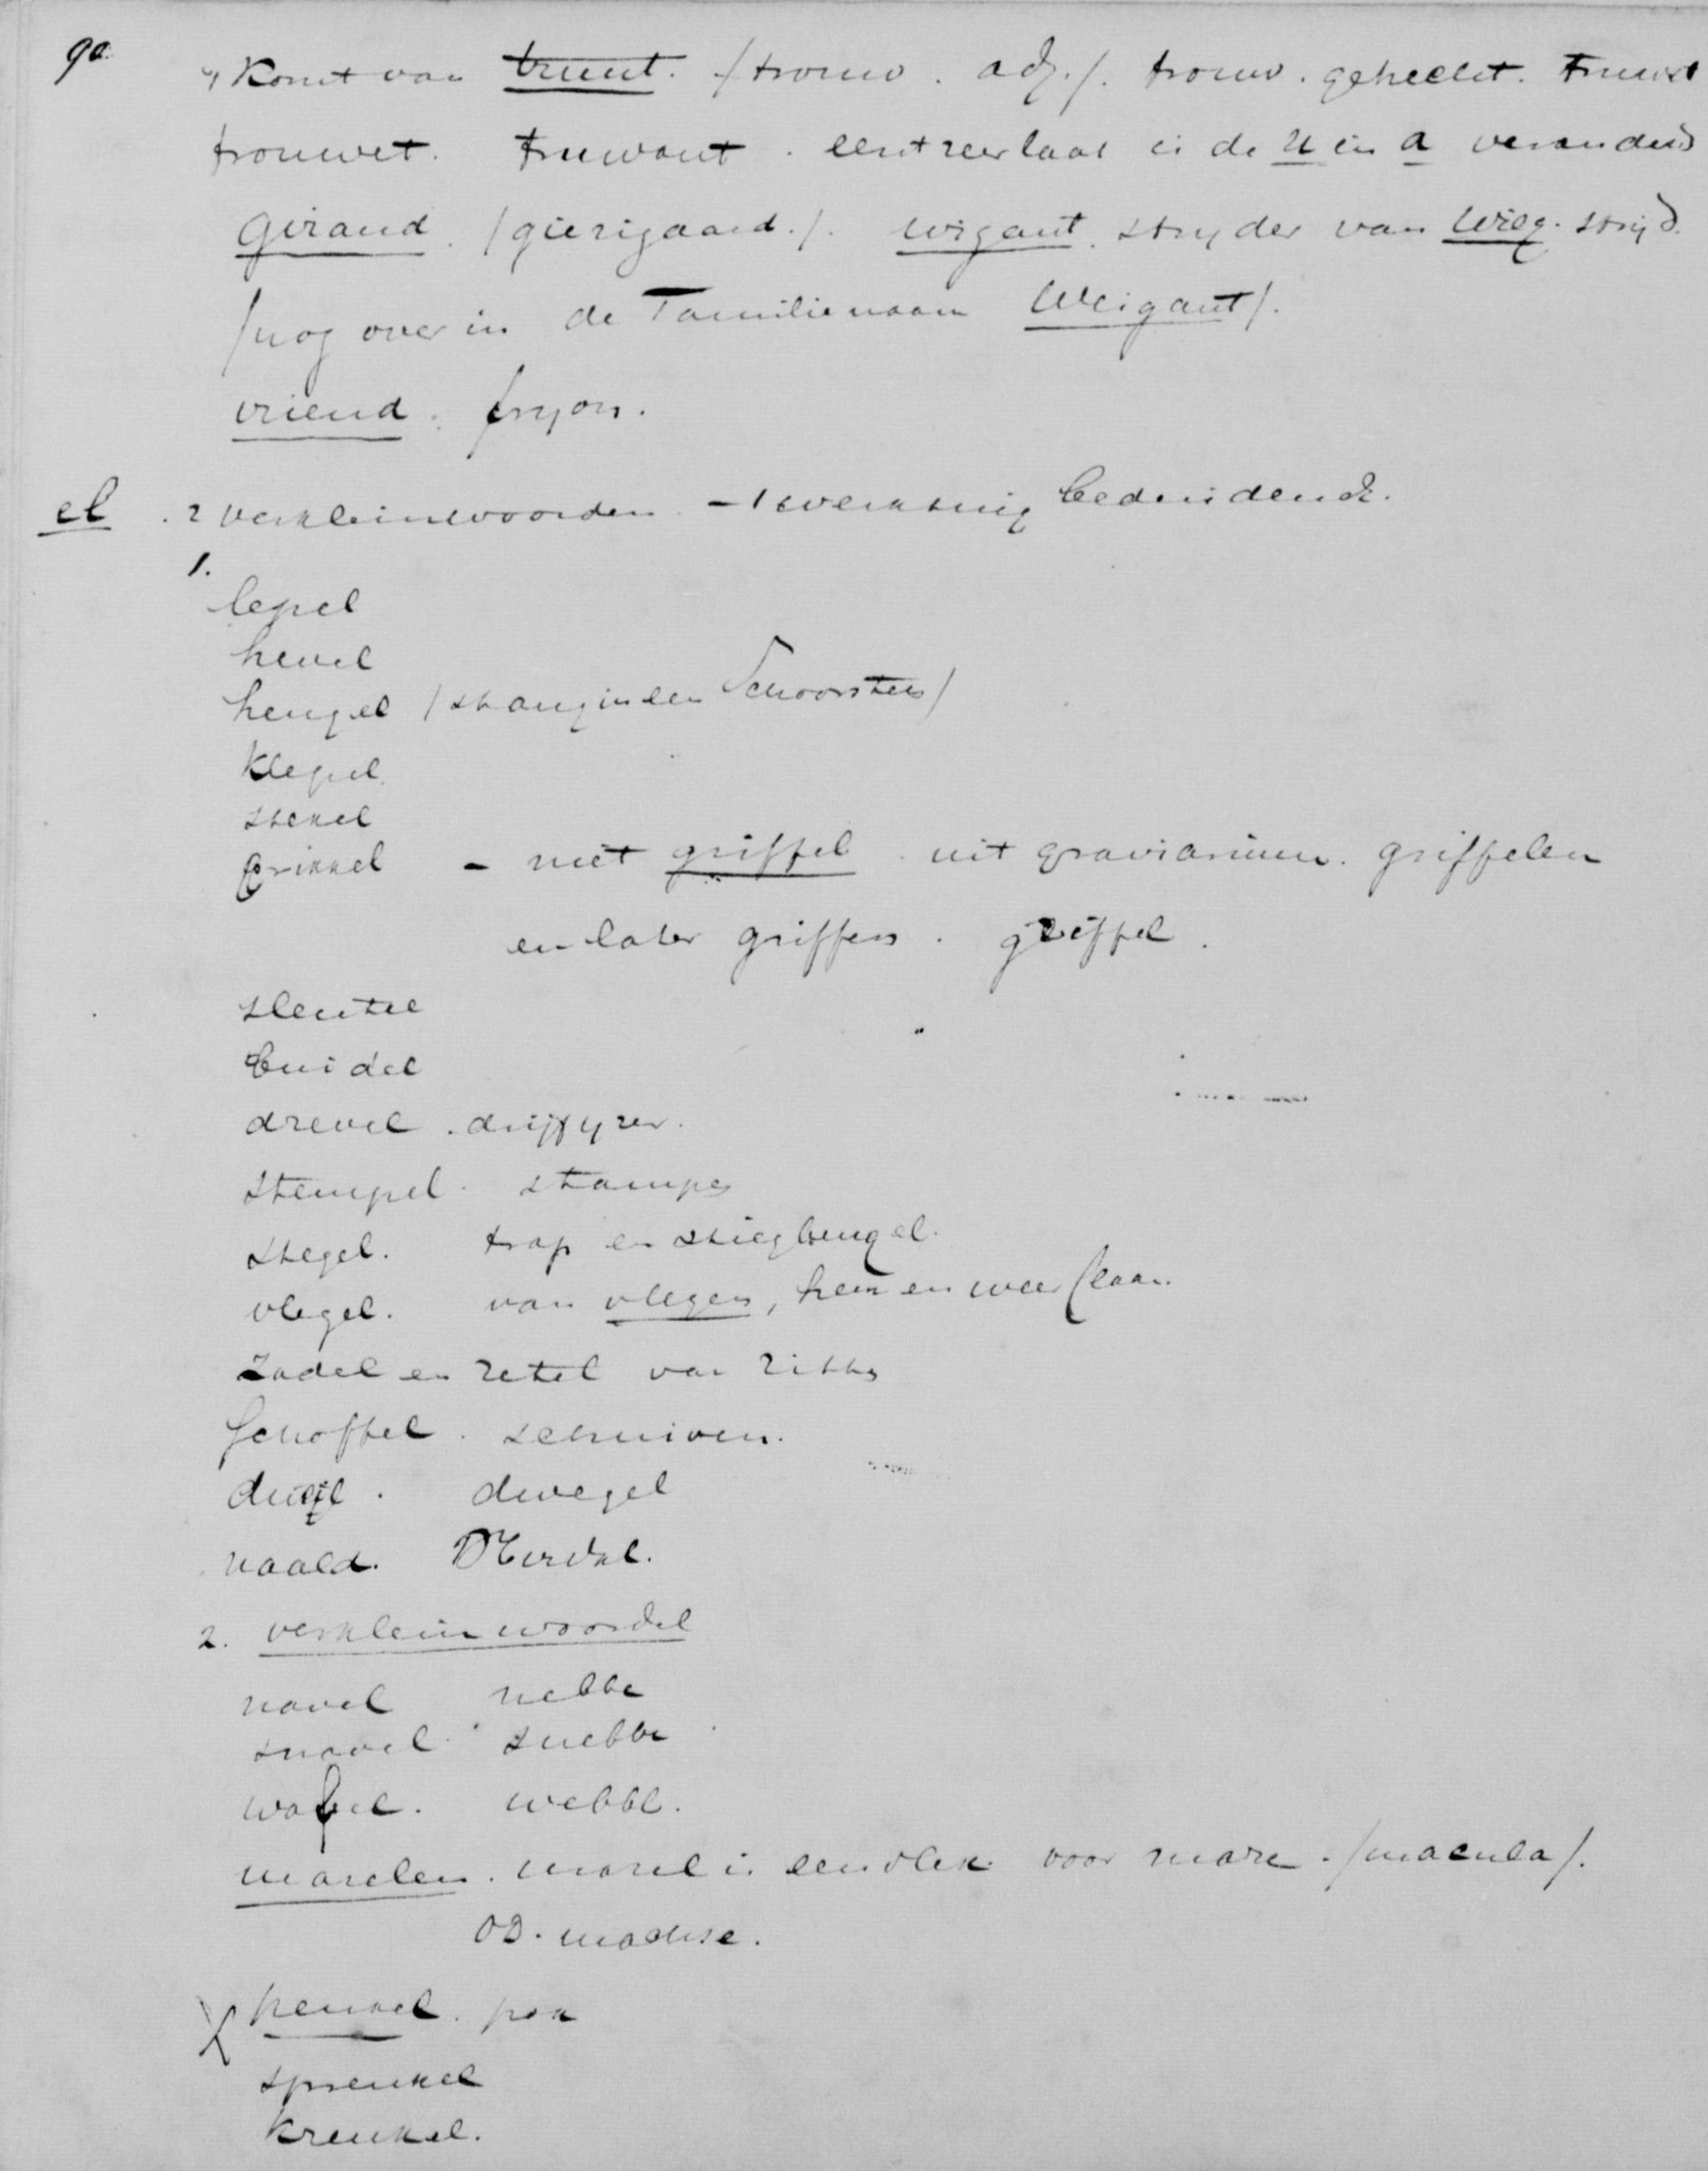 90.
Komt van truut. /trouw. adj./. trouw. gehecht. truwet
trouwet. truwant. eertweer laat is de u in a veranderd
girand. /gierigaard./. wigant. stryder van wieg. strijd.
/nog over in de Familienaam Weigant/.
vriend. fryon.
el. 2 verkleinwoorden. - 1 werktuig beduidend.
1.
lepel
hevel
hengel /stang in den Schoorsteen/
Klepel.
stekel
prikkel - niet griffel. uit graviarium. griffelen
en later griffen. griffel.
sleutel
buidel
drevel. drijfyzer.
stempel. stampen
stegel. trap en stiegbeugel.
vlegel. van vlegen, heen en weer slaan.
zadel en zetel van zitten
Schoffel. schuiven.
dweil. dwegel
naald.
2. verkleinwoordel
navel nebbe
snavel. snebbe
wafel. webbe.
maselen. masel is een vlek voor mase. /macula/.
OD. madse.
X penkel. pok
sprenkel
krenkel.